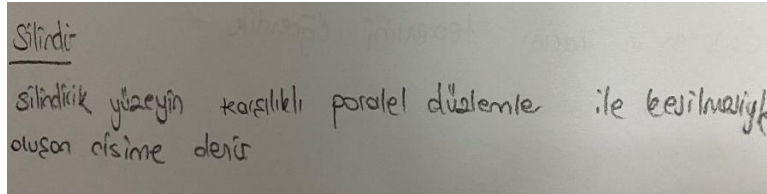 Silindir
silindirik yüzeyin karşılıklı paralel düzlemle ile kesilmesiyle
oluşan cisime denir